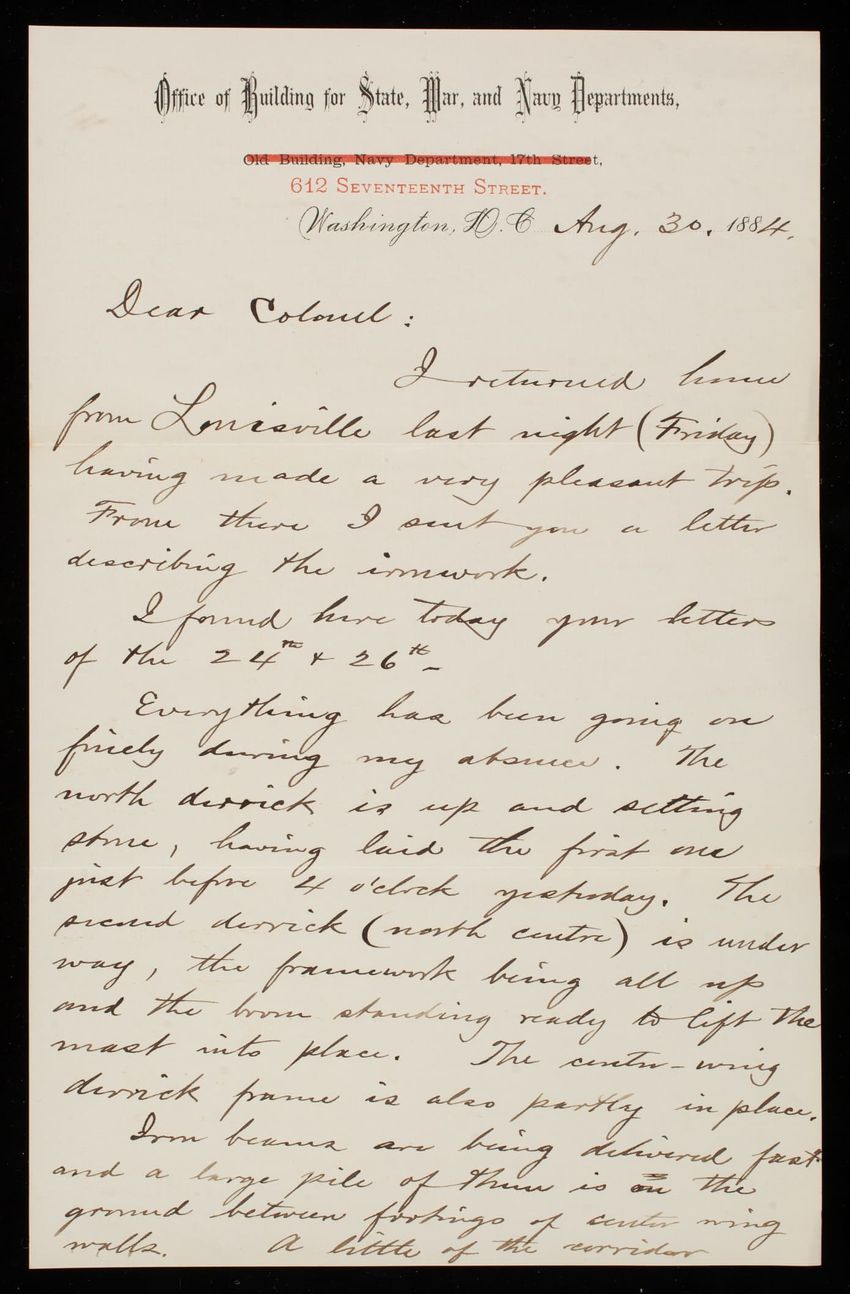 Office of Building for State, War, and Navy Departments,
Old Building, Navy Department, 17th Street,
612 SEVENTEENTH STREET.
Washington, D.C. Aug. 30, 1884.
Dear Colonel:
I returned home
from Louisville last night (Friday)
having made a very pleasant trip.
From there I sent you a letter
describing the ironwork.
I found here today your letters
of the 24th & 26th –
Everything has been going on
finely during my absence. The
north derrick is up and setting
stone, having laid the first one
just before 4 o'clock yesterday. The
second derrick (north centre) is under
way, the framework being all up
and the boom standing ready to lift the
mast into place. The center-wing
derrick frame is also partly in place.
Iron beams are being delivered fast
and a large pile of them is on the
ground between footings of center wing
walls. A little of the corridor